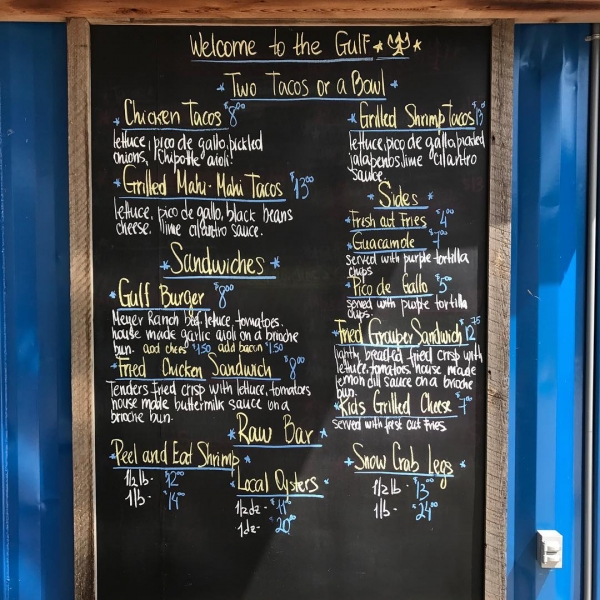 Welcome to the Gulf
Two Tacos or a Bowl
Chicken Tacos $8.00
lettuce, pico de gallo, pickled
onions, chipotle aioli
Grilled Mahi-Mahi Tacos $13.00
lettuce, pico de gallo, black beans
cheese, lime cilantro sauce.
Sandwiches
Gulf Burger $8.00
Meyer Ranch beef, lettuce, tomatoes,
house made garlic aioli on a brioche
bun. add cheese $1.50 add bacon $1.50
Fried Chicken Sandwich $8.00
Tenders fried crisp with lettuce, tomatoes
house made buttermilk sauce on a
brioche bun.
Grilled Shrimp Tacos $13
lettuce, pico de gallo, pickled
jalapenos, lime cilantro
sauce.
Sides
Fresh cut Fries $4.00
Guacamole $7.00
served with purple tortilla
chips
Pico de Gallo $5.00
served with purple tortilla
chips.
Fried Grouper Sandwich $12.75
lightly breaded, fried crisp with
lettuce, tomatoes, house made
lemon dill sauce on a brioche
bun.
Kids Grilled Cheese $7.00
served with fresh cut fries
Raw Bar
Peel and Eat Shrimp
1/2 lb - $12.00
1 lb - $14.00
Local Oysters
1/2 dz - $11.00
1 dz - $20.00
Snow Crab Legs
1/2 lb - $13.00
1 lb - $24.00